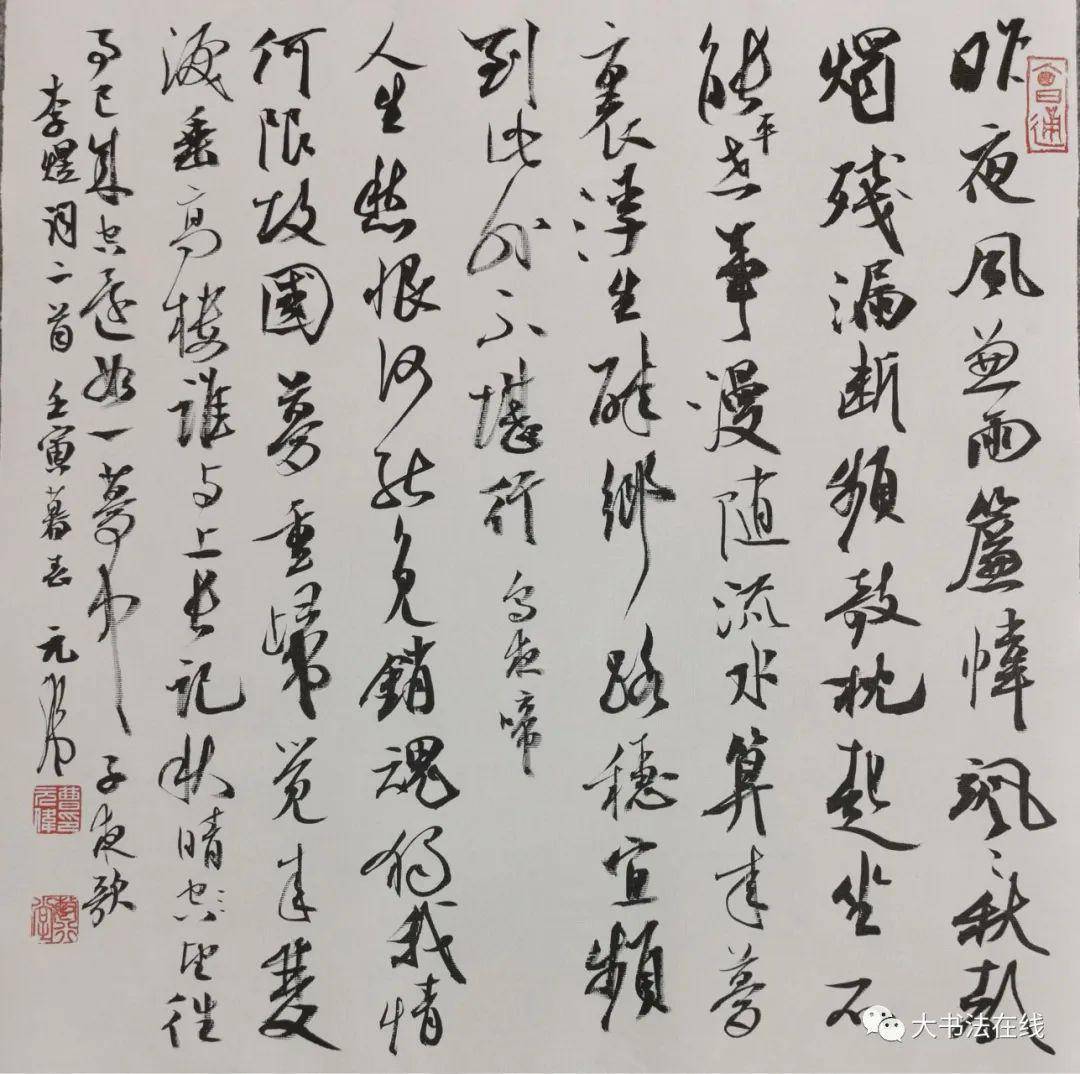 昨夜風兼雨簾幃颯〻秋聲
燭殘漏斷頻敧枕起坐不
能平世事漫随流水算来夢
裏浮生醉鄉路穩宜頻
到此外不堪行 烏夜啼
人生愁恨何能免銷魂獨我情
何限故國夢重歸覺来雙
淚垂高樓誰与上長記秋晴空望往
事已成空還如一夢中 子夜歌
李煜詞二首 壬寅暮春 元偉
會通
曹元偉印
大书法在线